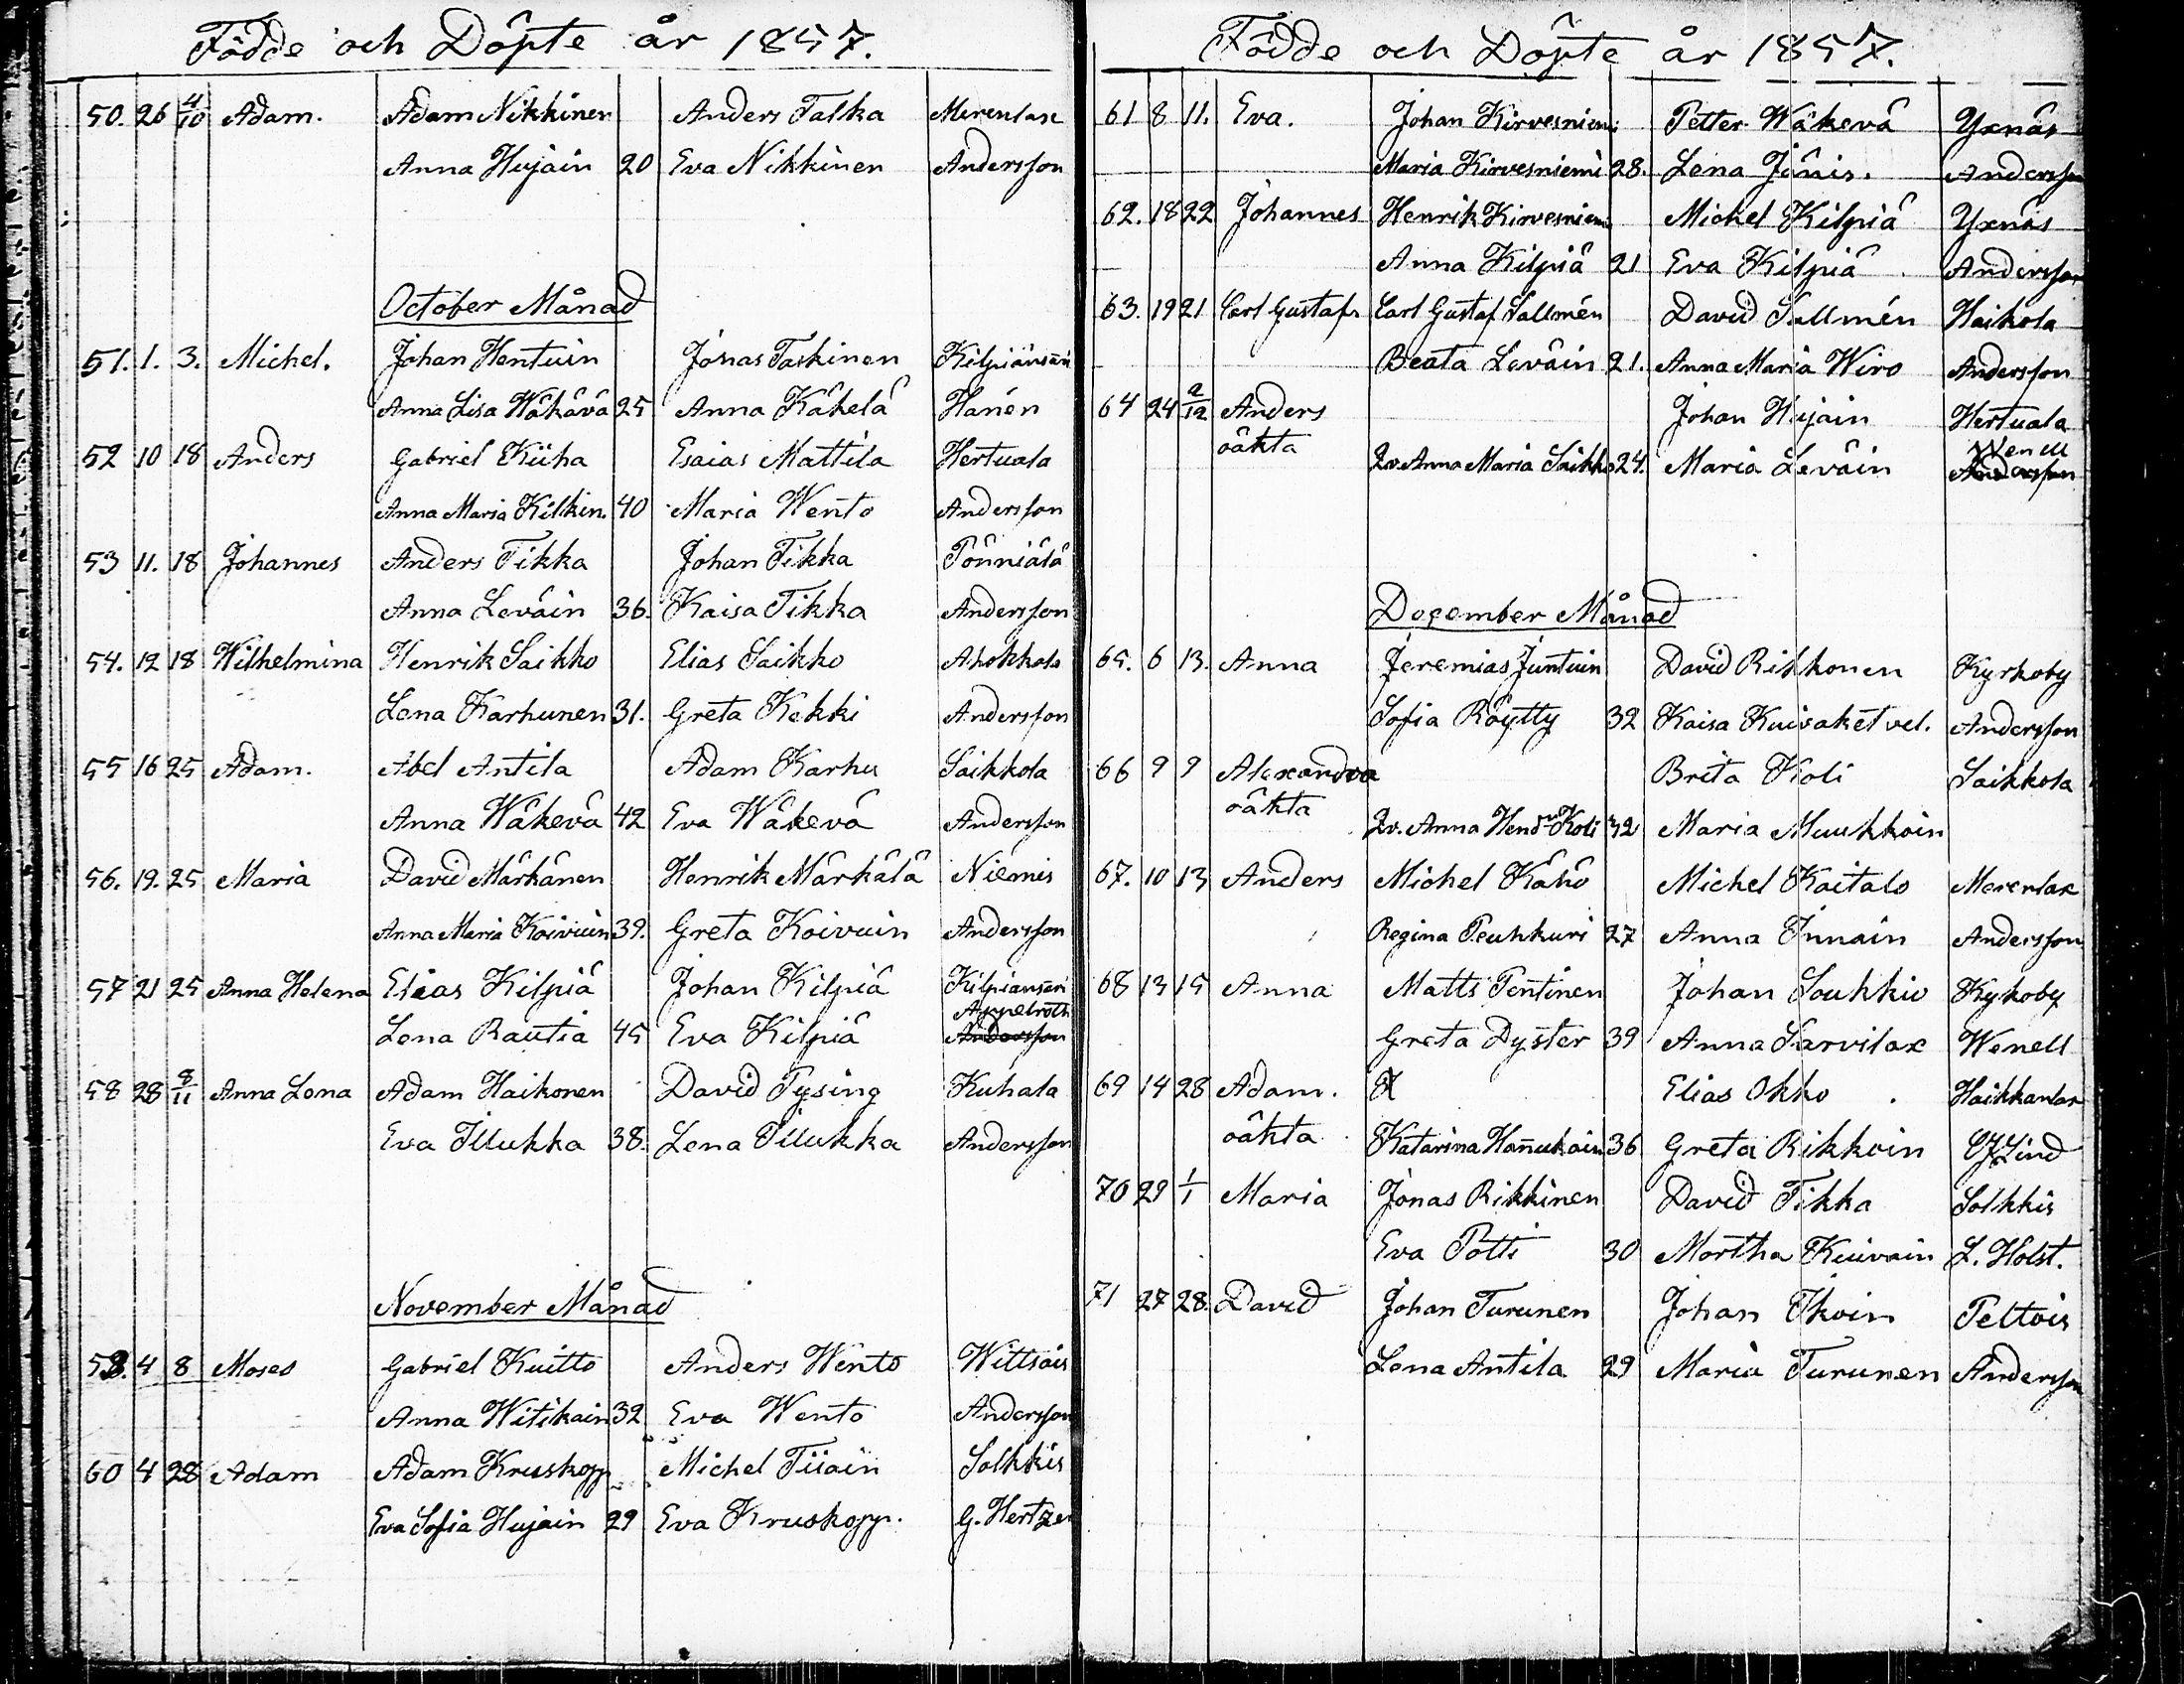 Födde och Döpte år 1857.
50. 26 4/10 Adam. Adam Nikkinen Anders Talka Merenlax
Anna Hujain 20 Eva Nikkinen Andersson
October Månad
51. 1. 3. Michel. Johan Hentuin Jonas Taskinen Kilpiänsari
Anna Lisa Wäkävä 25 Anna Kähelä Hanén
52 10 18 Anders Gabriel Kiiha Esaias Mattila Hertuala
Anna Maria Kilkin. 40 Maria Wento Andersson
53 11. 18 Johannes Anders Tikka Johan Tikka Pönniälä
Anna Leväin 36. Kaisa Tikka Andersson
54. 12 18 Wilhelmina Henrik Saikko Elias Saikko Ahokkala
Lena Karhunen 31. Greta Kekki Andersson
55 16 25 Adam. Abel Antila Adam Karhu Saikkola
Anna Wäkevä 42 Eva Wäkevä Andersson
56. 19. 25 Maria David Märkänen Henrik Märkälä Niemis
Anna Maria Koivuin 39. Greta Koivuin Andersson
57 21 25 Anna Helena Elias Kilpiä Johan Kilpiä Kilpiansari
Appelroth
Lena Rautia 45 Eva Kilpiä Andersson
58 28 8/11 Anna Lena Adam Haikonen David Pysing Kuhala
Eva Illukka 38. Lena Illukka Andersson
November Månad
59. 4 8 Moses Gabriel Kuitto Anders Wento Wittsäis
Anna Witikain 32 Eva Wento Andersson
60 4 28 Adam Adam Kruskopp Michel Tiiain Solkkis
Eva Sofia Hujain 29 Eva Kruskopp. G. Hertzen
Födde och Döpte år 1857.
61 8 11. Eva. Johan Kirvesniemi Petter Wäkevä Yxnäs
Maria Kirvesniemi 28. Lena Jänis. Andersson
62. 18 22 Johannes Henrik Kirvesniemi Michel Kilpiä Yxnäs
Anna Kilpiä 21 Eva Kilpiä Andersson
63. 19 21 Carl Gustaf Carl Gustaf Sallmén David Sallmén Haikola
Beata Leväin 21. Anna Maria Wiro Andersson
64 24 2/12 Anders Johan Hujain Hertuala
oäkta Qv. Anna Maria Saikko 24. Maria Leväin Wenell
Andersson
December Månad
65. 6 13. Anna Jeremias Juntuin David Rikkonen Kyrkoby
Sofia Röytty 32 Kaisa Kuisaket vel. Andersson
66 9 9 Alexandra Brita Koli Saikkola
oäkta Qv. Anna Hendr Koli 32 Maria Muukkoin
67. 10 13 Anders Michel Kähö Michel Kaitalo Merenlax
Regina Peuhkuri 27 Anna Innain Andersson
68 13 15 Anna Matts Pentinen Johan Soukkio Kykoby
Greta Dyster 39 Anna Sarvilax Wenell
69 14 28 Adam. Elias Okko Haikkanlax
oäkta Katarina Hanukain 36 Greta Rikkoin Lind
70 29 1/1 Maria Jonas Rikkinen David Tikka Solkkis
Eva Potti 30 Martha Kuivain L. Holst.
71 27 28. David Johan Turunen Johan Ikoin Peltois
Lena Antila 29 Maria Turunen Andersson